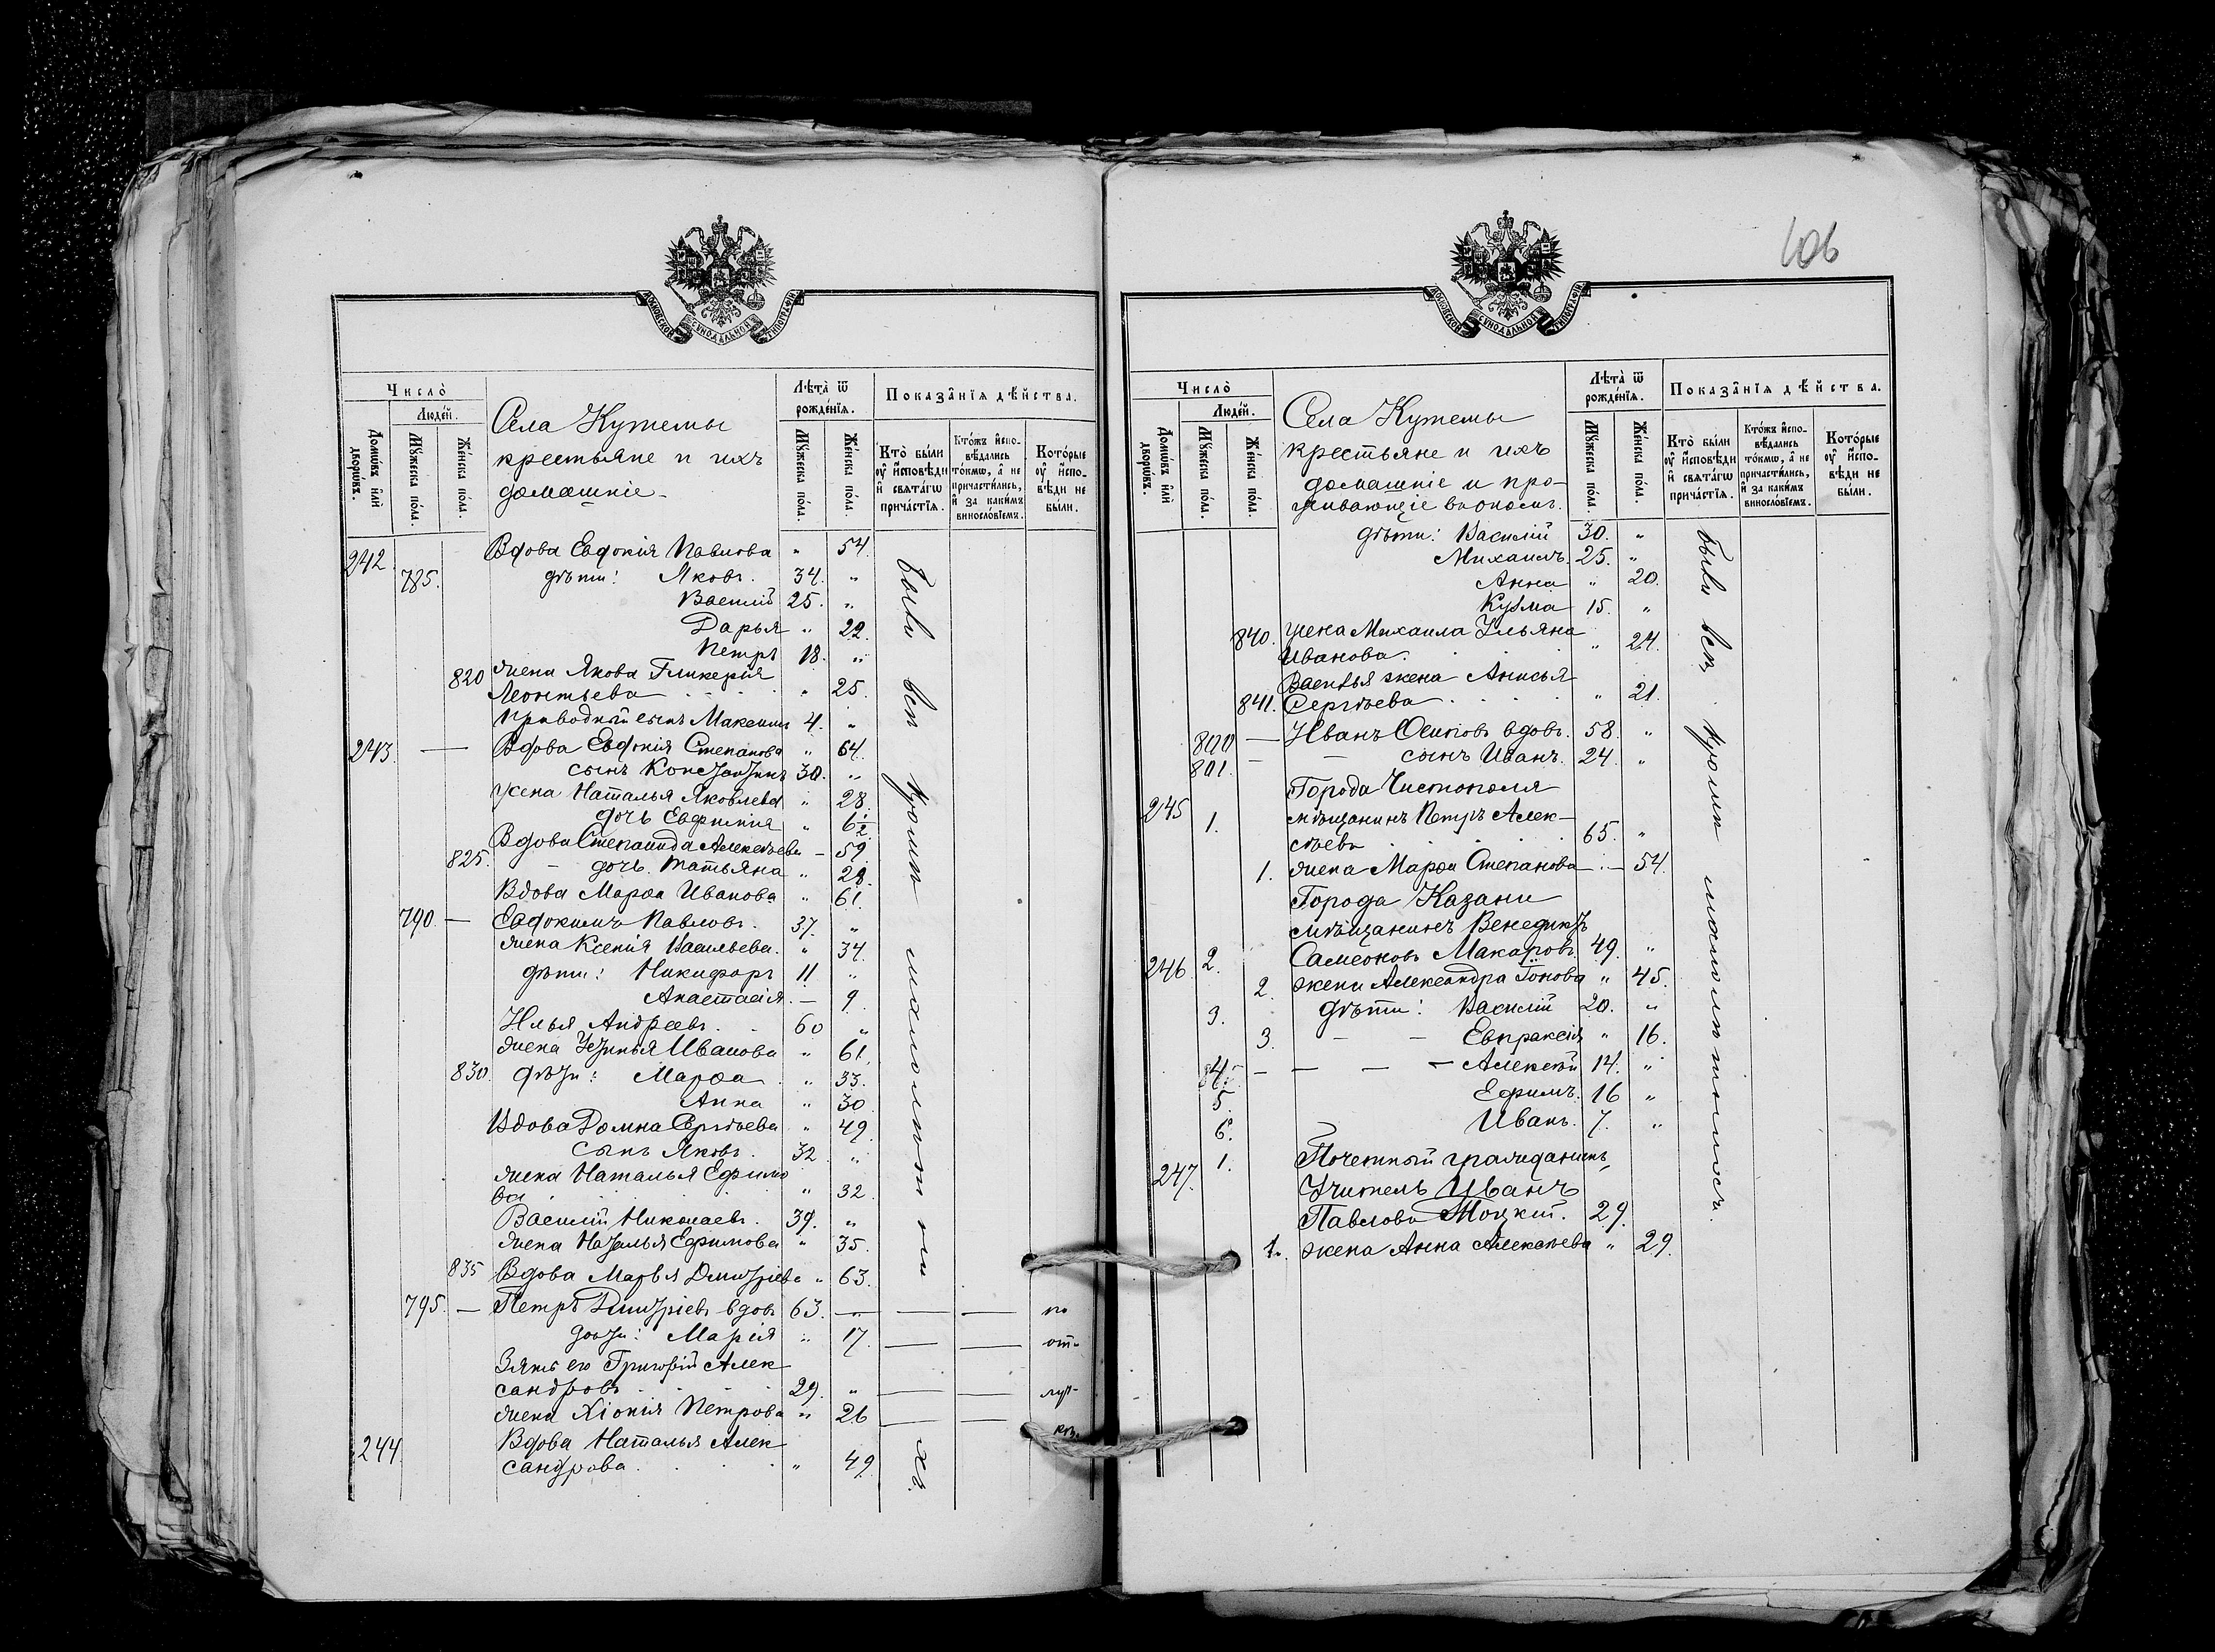 МОСКОВСКОЙ СѴНОДАЛЬНОЙ ТИПОГРАФІИ
Число̀
Люде́й.
Домѡ́въ и҆лѝ дворѡ́въ.
Мꙋ́жеска по́ла.
Же́нска по́ла.
Села Кутемы
крестьяне и ихъ
домашніе
Лѣ́та ѿ рожде́нїѧ.
Мꙋ́жеска по́ла.
Же́нска по́ла.
Показа̑нїѧ дѣ́йства.
Кто̀ бы́ли ᲂу҆ и҆́сповѣди и҆ свѧта́гѡ прича́стїѧ.
Кто́жъ и҆спо-вѣ́дались то́кмѡ, а҆ не причасти́лись, и҆ за каки́мъ виносло́вїемъ.
Кото́рые ᲂу҆ и҆́спо-вѣди не бы́ли.
242 Вдова Евдокія Павлова " 54.
785. дѣти: Яковъ. 34. "
Василій 25. "
Дарья " 22.
Петръ 18. "
820 жена Якова Гликерія
Леонтьева " 25.
Приводный сынъ Максимъ 4. "
243. — Вдова Евдокія Степанова " 64.
сынъ Константинъ 30. "
жена Наталья Яковлева " 28.
дочь Евфимія " 6½
Вдова Степанида Алексѣева — 59.
825. — дочь Татьяна " 28.
Вдова Марѳа Иванова " 61.
790. — Евдокимъ Павловъ. 37. "
жена Ксенія Васильева. " 34.
дѣти: Никифоръ 11 "
Анастасія. — 9.
Илья Андреевъ. 60 "
жена Устинья Иванова " 61.
830. дѣти: Марѳа " 33.
Анна " 30.
Вдова Домна Сергѣева " 49.
сынъ Яковъ. 32 "
жена Наталья Ефимо
ва " 32.
Василій Николаевъ. 39. "
жена Наталья Ефимова " 35.
835 Вдова Марья Дмитріева " 63.
795. — Петръ Дмитріевъ вдовъ 63. — — — по
дѣти: Марія " 17. — — от-
Зять его Григорій Алек
сандровъ 29. " — — луч-
жена Хіонія Петрова " 26 — — кѣ.
244. Вдова Наталья Алек
сандрова. " 49.
были всѣ кромѣ малолѣтнихъ.
106
МОСКОВСКОЙ СѴНОДАЛЬНОЙ ТИПОГРАФІИ
Число̀
Люде́й.
Домѡ́въ и҆лѝ дворѡ́въ.
Мꙋ́жеска по́ла.
Же́нска по́ла.
Села Кутемы
крестьяне и ихъ
домашніе и про-
живающіе въ ономъ.
Лѣ́та ѿ рожде́нїѧ.
Мꙋ́жеска по́ла.
Же́нска по́ла.
Показа̑нїѧ дѣ́йства.
Кто̀ бы́ли ᲂу҆ и҆́сповѣди и҆ свѧта́гѡ прича́стїѧ.
Кто́жъ и҆спо-вѣ́дались то́кмѡ, а҆ не причасти́лись, и҆ за каки́мъ виносло́вїемъ.
Кото́рые ᲂу҆ и҆́спо-вѣди не бы́ли.
дѣти: Василій 30. "
Михаилъ. 25. "
Анна " 20.
Кузма 15. "
840. жена Михаила Ульяна
Иванова. " 24.
Василья жена Анисья
841. Сергѣева " 21.
800 — Иванъ Осиповъ вдовъ. 58. "
801. — — сынъ Иванъ. 24. "
Города Чистополя
245 1. мѣщанинъ Петръ Алек-
сѣевъ 65. "
1. жена Марѳа Степанова — 54.
Города Казани
мѣщанинъ Венедиктъ
246 2. Самсоновъ Макаровъ 49. "
2. жена Александра " 45.
3. дѣти: Василій 20. "
3. — — Евпраксія " 16.
4. — — — — Алексѣй 14. "
5. Ефимъ. 16 "
6. Иванъ. 7. "
247. 1. Почетный гражданинъ,
Учитель Иванъ
Павловъ 29.
1. жена Анна Алексѣева " 29.
были всѣ кромѣ малолѣтнихъ.